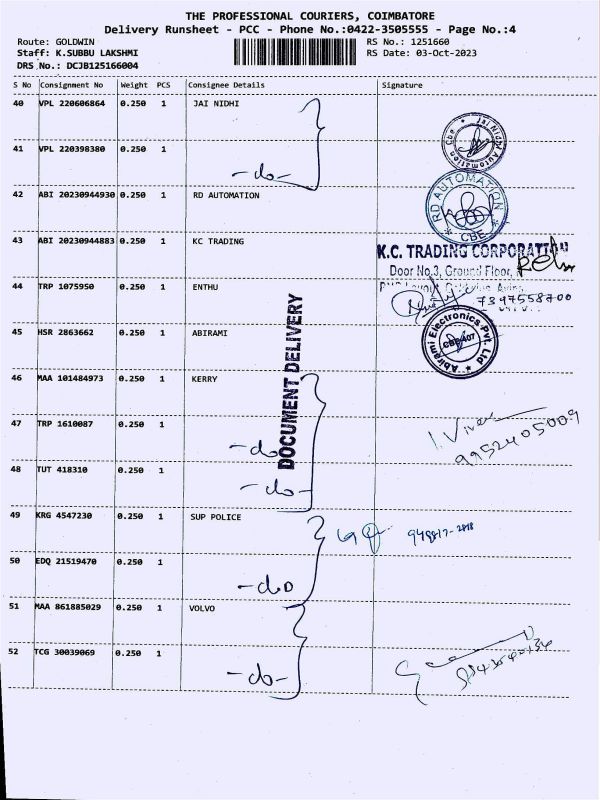 THE PROFESSIONAL COURIERS, COIMBATORE
Delivery Runsheet - PCC - Phone No.:0422-3505555 - Page No.:4
Route: GOLDWIN RS No.: 1251660
Staff: K.SUBBU LAKSHMI RS Date: 03-Oct-2023
DRS No.: DCJB125166004
S No Consignment No Weight PCS Consignee Details Signature
40 VPL 220606864 0.250 1 JAI NIDHI
Jai Nidhi Automation Cbe
41 VPL 220398380 0.250 1
-do-
42 ABI 20230944930 0.250 1 RD AUTOMATION
RD AUTOMATION
CBE
43 ABI 20230944883 0.250 1 KC TRADING
K.C. TRADING CORPORATION
Door No.3, Ground Floor,
44 TRP 1075950 0.250 1 ENTHU
7397558700
45 HSR 2863662 0.250 1 ABIRAMI
Abirami Electronics Pvt. Ltd
DOCUMENT DELIVERY
46 MAA 101484973 0.250 1 KERRY
47 TRP 1610087 0.250 1
-do-
9952405009
48 TUT 418310 0.250 1
-do-
49 KRG 4547230 0.250 1 SUP POLICE
50 EDQ 21519470 0.250 1
-do
51 MAA 861885029 0.250 1 VOLVO
52 TCG 30039069 0.250 1
-do-